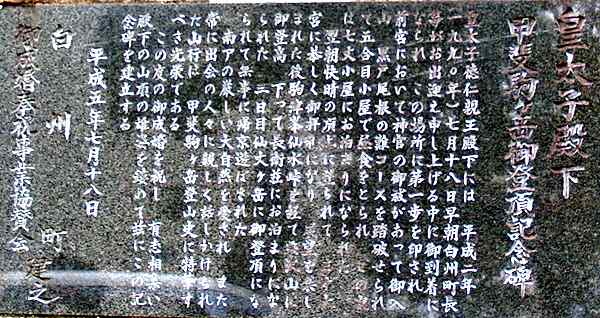 皇太子殿下
甲斐駒ヶ岳御登頂記念碑
皇太子徳仁親王殿下には 平成二年
一九九〇年）七月十八日早朝白州町長
等がお出迎え申し上げる中に御到着に
なられ この場所に第一歩を印され
前宮において神官の御祓があって御入
山 黒戸尾根の難コースを踏破せられ
て五合目小屋で昼食をとられ
は七丈小屋にお泊まりになられた
翌朝快晴の頂上に登られて
宮に恭しく御拝礼になり
まれた後駒津峯仙水峠を経て
御登高 下って長衛荘にお泊まりにな
られた 三日目仙丈ヶ岳に御登頂にな
られて無事に帰京遊ばされた
南アの厳しい大自然を愛され また
常に出会の人々に親しく話しかけられ
た山行は 甲斐駒ヶ岳登山史に特筆す
べき光栄である
この度の御成婚を祝し 有志相集い
殿下の山頂の雄姿を錄めて茲にこの記
念碑を建立する
平成五年七月十八日
白州町 建之
御成婚奉祝事業協賛会